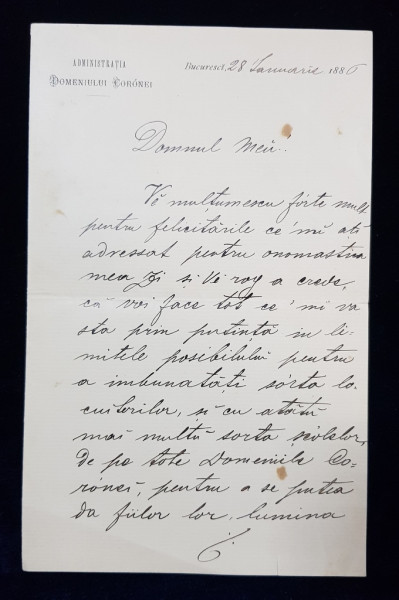 ADMINISTRAȚIA
DOMENIULUI CORÓNEI
Bucuresci, 28 Ianuarie 1886
Domnul Meŭ!
Vĕ mulțumescu fórte mult
pentru felicitările ce'mĭ ați
adressat pentru onomastica
mea Ẕi si Vĕ rog a crede,
că voi face tot ce'mi va
sta prin putință in li=
mitele posibilului pentru
a imbunatăți sórta lo=
cuitorilor, și cu atâtŭ
maĭ multŭ sorta șcólelor,
de pe tóte Domeniile Co=
rónei, pentru a se putea
da fiilor lor, lumina